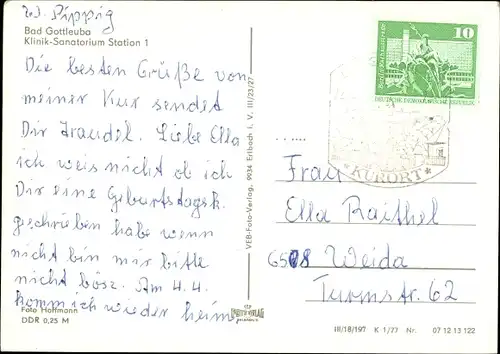 W. Pippig
Bad Gottleuba
Klinik-Sanatorium Station 1
Die besten Grüße von
meiner Kur sendet
Dir Traudel. Liebe Ella
ich weis nicht ob ich
Dir eine Geburtstagsk.
geschrieben habe wenn
nicht bin mir bitte
nicht böse. Am 4.4.
komm ich wieder heim
Foto Hoffmann
DDR 0,25 M
VEB-Foto-Verlag, 9934 Erlbach i. V. III/23/27
10
DEUTSCHE DEMOKRATISCHE REPUBLIK
*KURORT*
Frau
Ella Raithel
6508 Weida
Turmstr. 62
III/18/197 K 1/77 Nr. 07 12 13 122